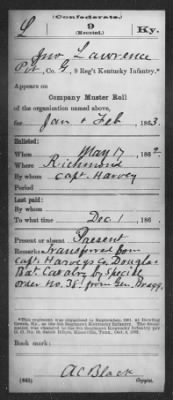 (Confederate.)
L 9 Ky.
(Second.)
Jno Lawrence
Pvt, Co. G, 9 Reg't Kentucky Infantry.*
Appears on
Company Muster Roll
of the organization named above,
for Jan & Feb, 1863.
Enlisted:
When May 17, 1862.
Where Richmond
By whom Capt. Harvey
Period
Last paid:
By whom
To what time Dec 1, 186 .
Present or absent Present
Remarks: Transferred from
Capt. Harvey's Co. Douglas
Bat. Cavalry by Special
order No. 38/ from Gen. Bragg.
Book mark:
A C Black
(642) Copyist.